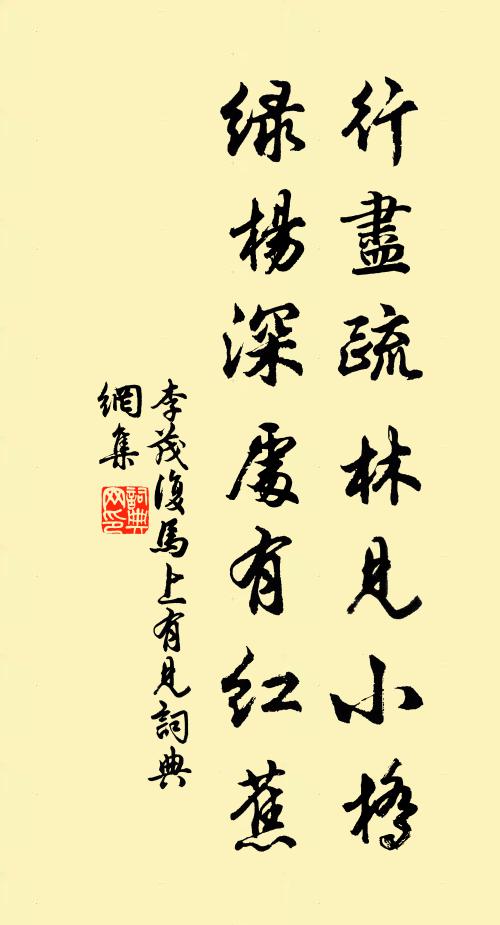 行盡疏林見小橋
綠楊深處有紅蕉
李茂復馬上有見詞典
網集
詞典
网印